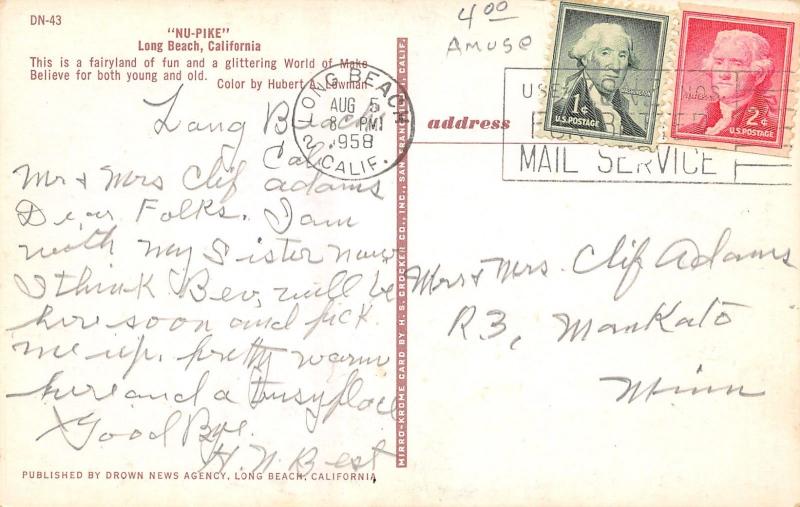 DN-43
"NU-PIKE"
Long Beach, California
This is a fairyland of fun and a glittering World of Make
Believe for both young and old.
Color by Hubert A. Lowman
4.00
Amuse
LONG BEACH
AUG 5
8 PM
1958
CALIF.
2
1¢
U.S. POSTAGE
2¢
U.S. POSTAGE
USE
FOR
MAIL SERVICE
address
Long Beach
Cal.
Mr & Mrs Clif Adams
Dear Folks. I am
with my Sister now
I think Bev, will be
here soon and pick
me up. pretty warm
here and a busy place
Good Bye.
H. N. Best
Mr & Mrs. Clif Adams
R3, Mankato
Minn
MIRRO-KROME CARD BY H. S. CROCKER CO., INC., SAN FRANCISCO, CALIF.
PUBLISHED BY DROWN NEWS AGENCY, LONG BEACH, CALIFORNIA